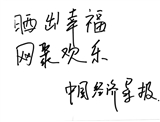 晒出幸福
网聚欢乐
中国经济导报